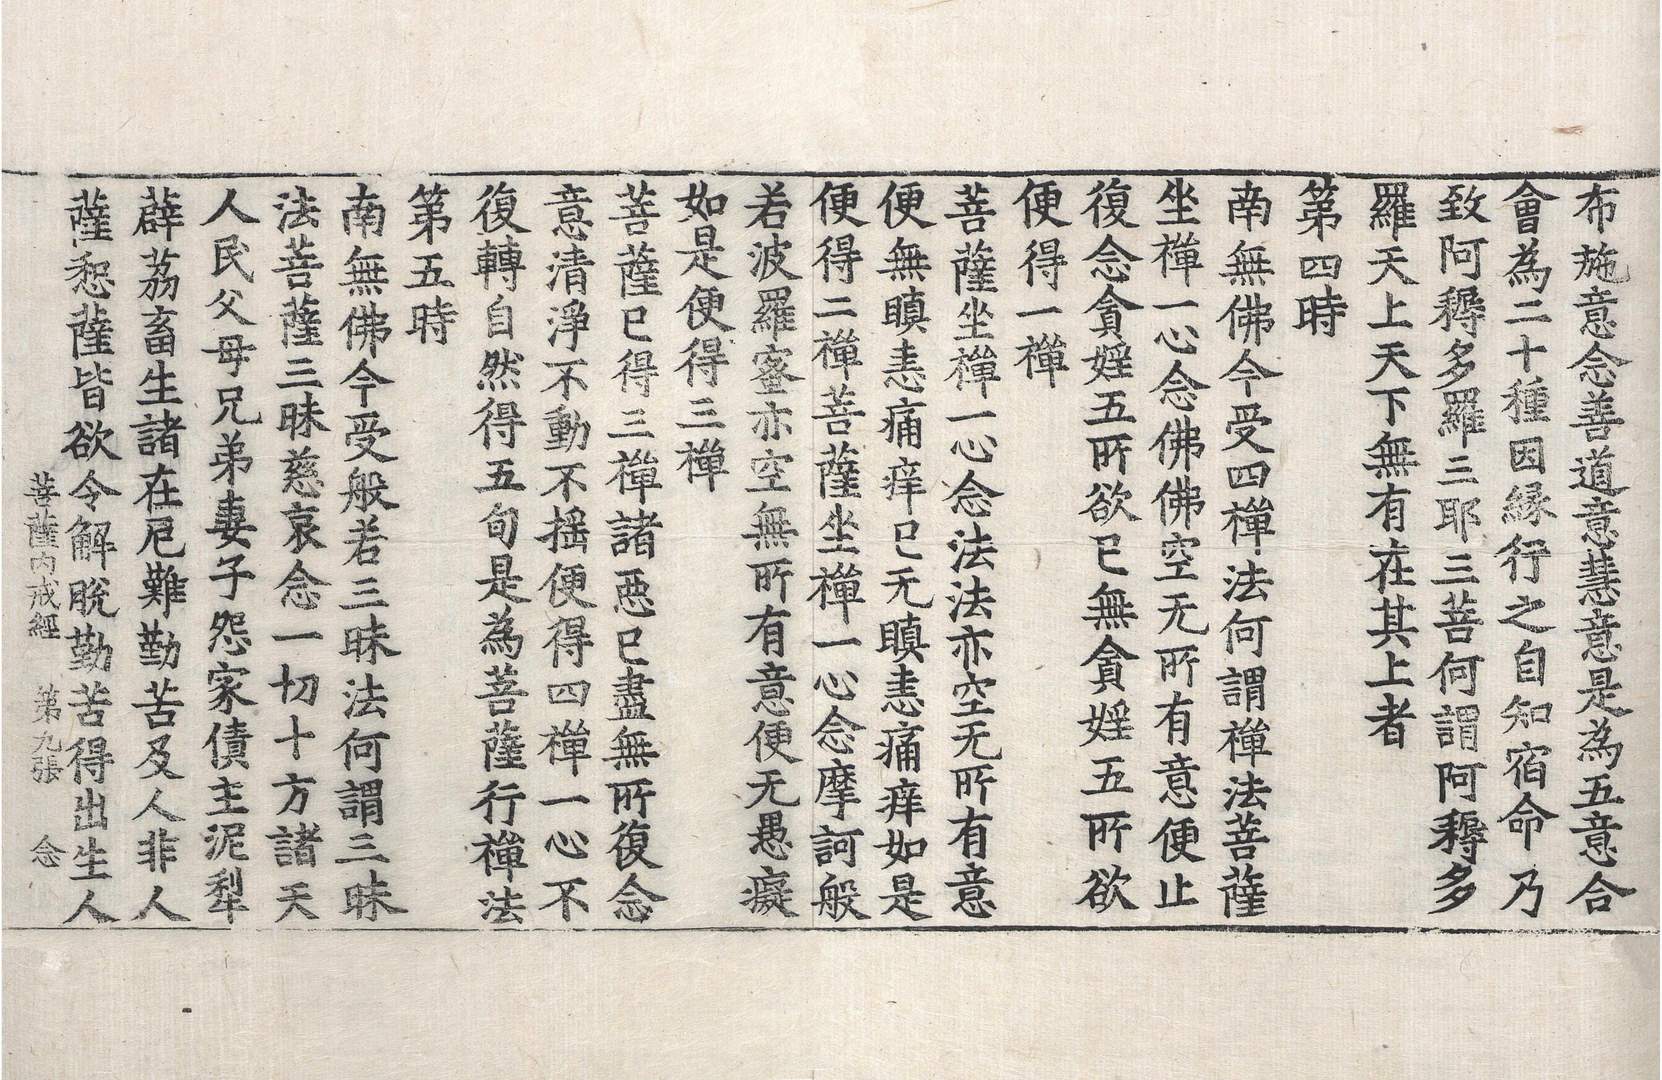 布施意念善道意慧意是為五意合
會為二十種因縁行之自知宿命乃
致阿耨多羅三耶三菩何謂阿耨多
羅天上天下無有在其上者
第四時
南無佛今受四禪法何謂禪法菩薩
坐禪一心念佛佛空无所有意便止
復念貪婬五所欲已無貪婬五所欲
便得一禪
菩薩坐禪一心念法法亦空无所有意
便無瞋恚痛痒已无瞋恚痛痒如是
便得二禪菩薩坐禪一心念摩訶般
若波羅蜜亦空無所有意便无愚癡
如是便得三禪
菩薩已得三禪諸惡已盡無所復念
意清淨不動不揺便得四禪一心不
復轉自然得五旬是為菩薩行禪法
第五時
南無佛今受般若三昧法何謂三昧
法菩薩三昧慈哀念一切十方諸天
人民父母兄弟妻子怨家債主泥犁
薜荔畜生諸在厄難勤苦及人非人
薩惒薩皆欲令解脫勤苦得出生人
菩薩内戒經 第九張 念